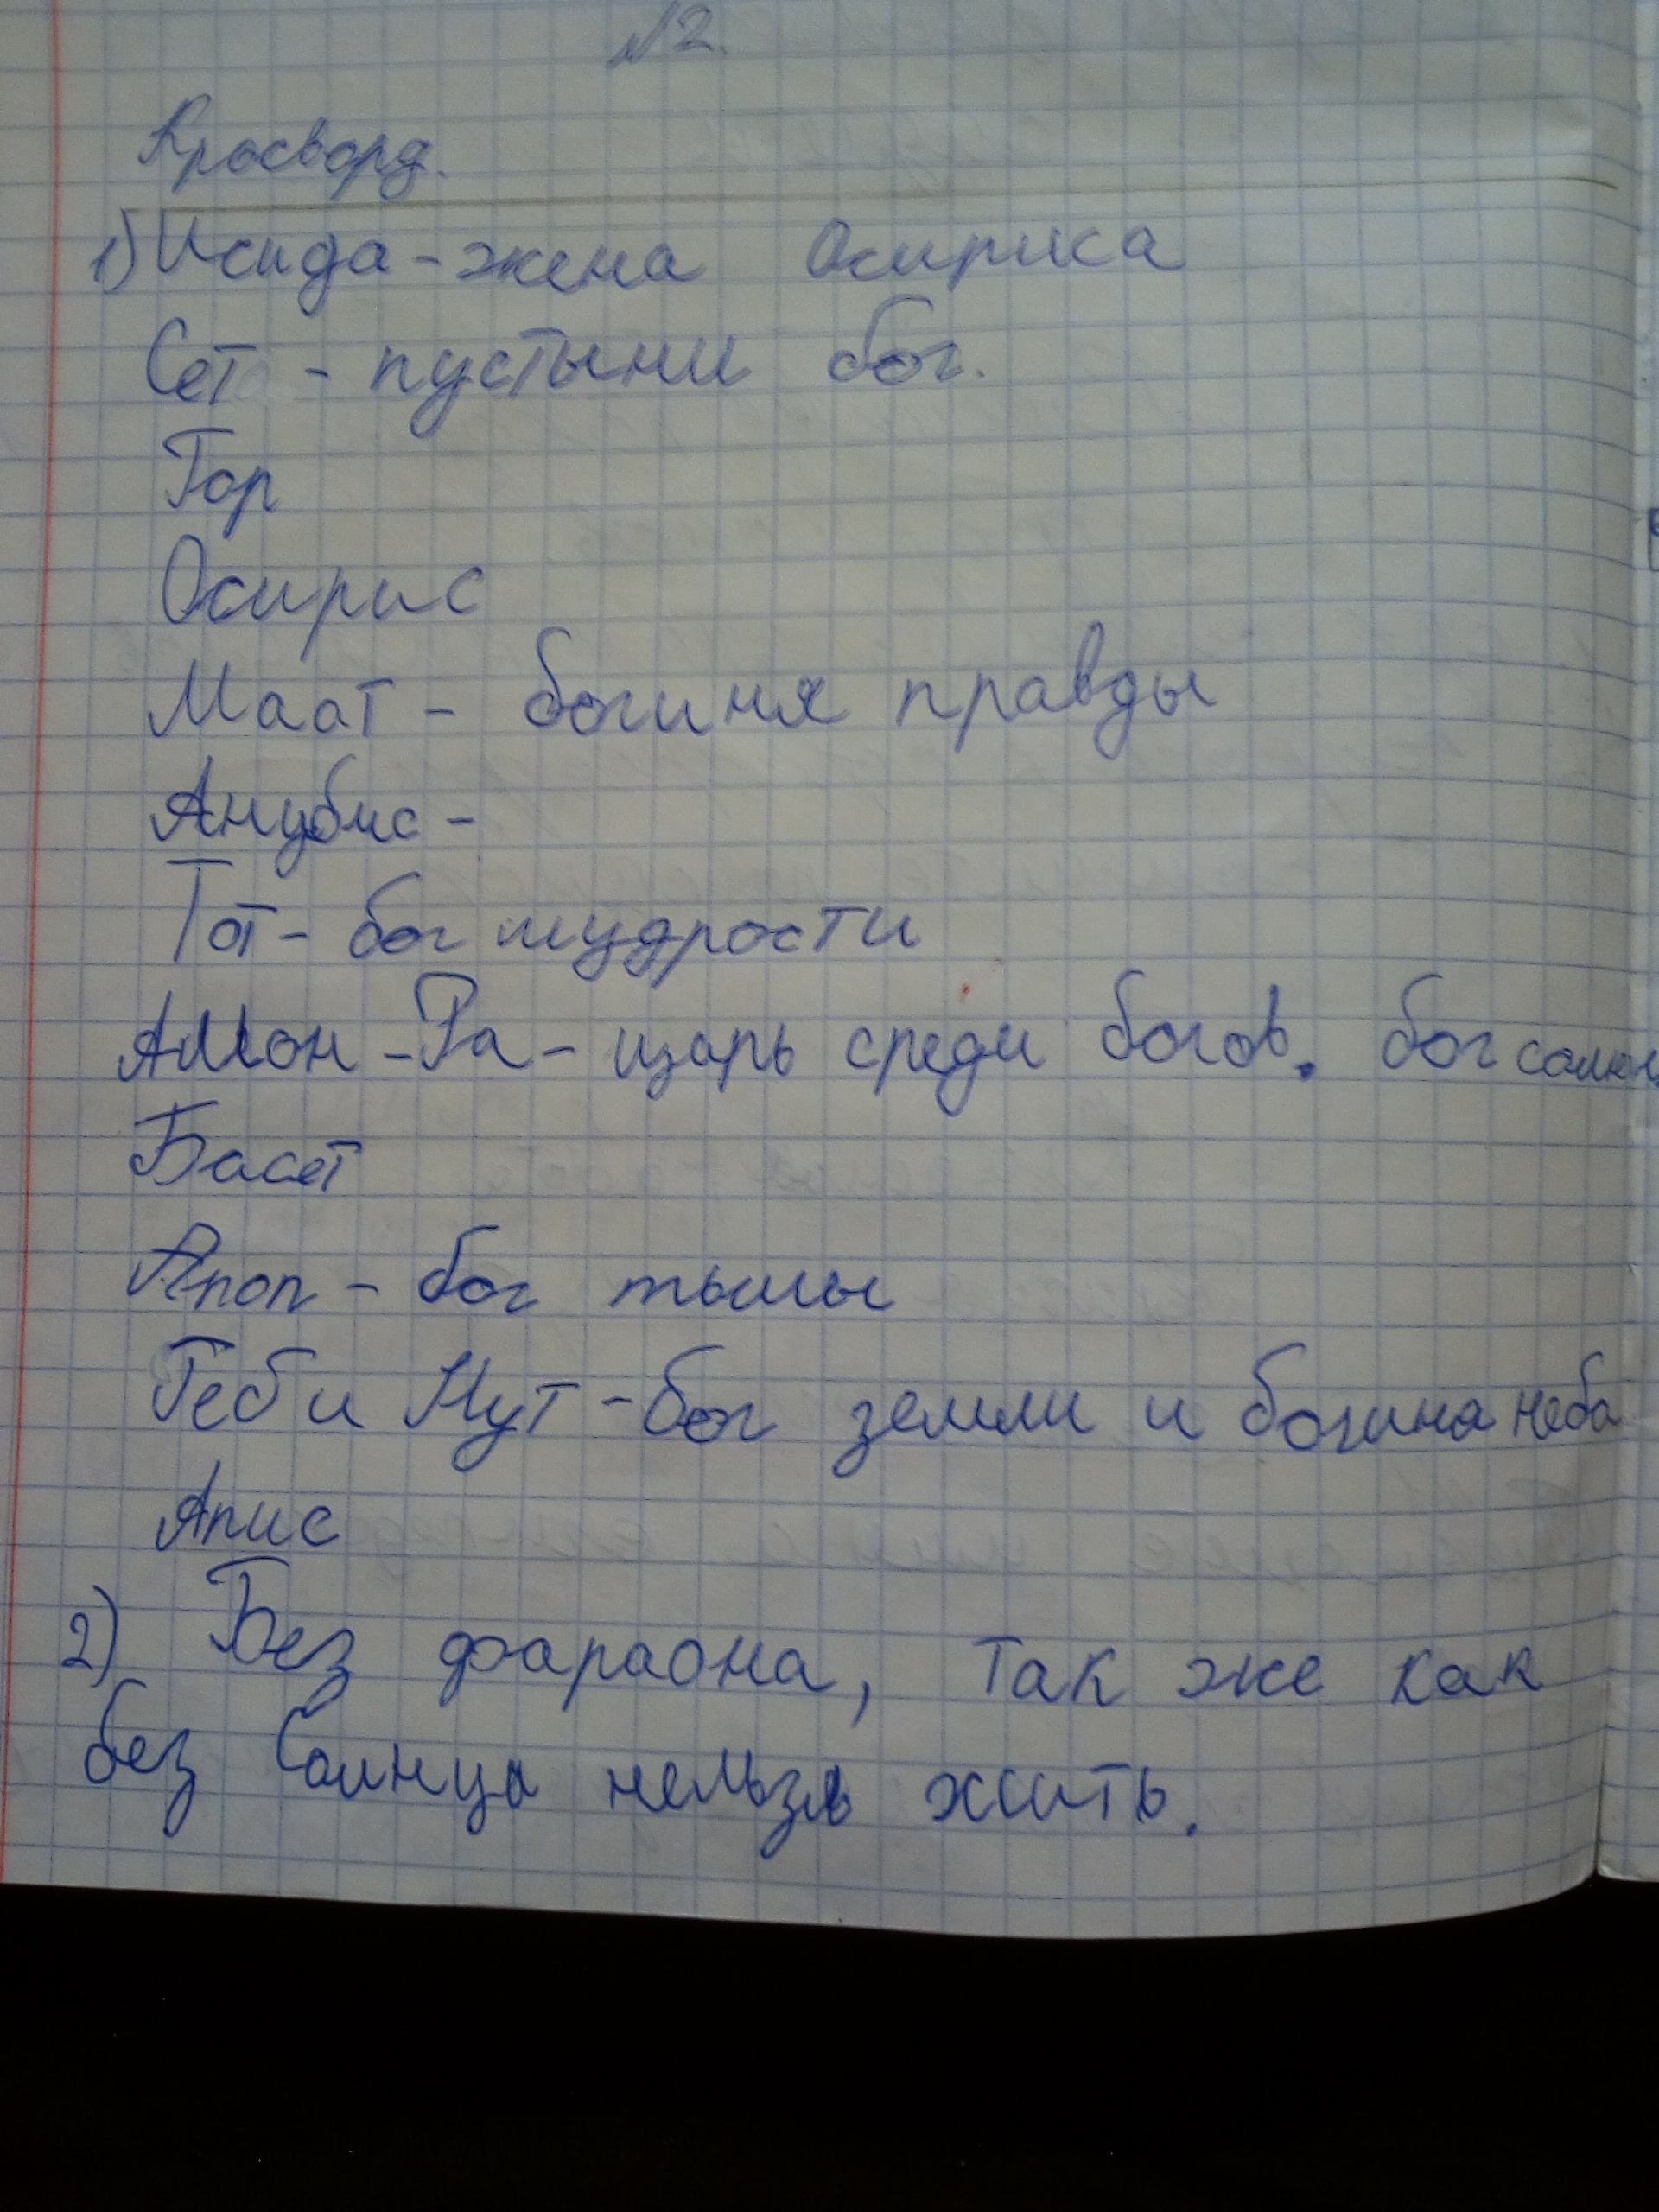 №2.
Кросворд.
1) Исида - жена Осириса
Сет - пустыни бог.
Гор
Осирис
Маат - богиня правды
Анубис -
Тот - бог мудрости
Амон - Ра - царь среди богов. бог
Басет
Апоп - бог тьмы
Геб и Нут - бог земли и богиня неба
Апис
2) Без фараона, так же как
без Солнца нельзя жить.